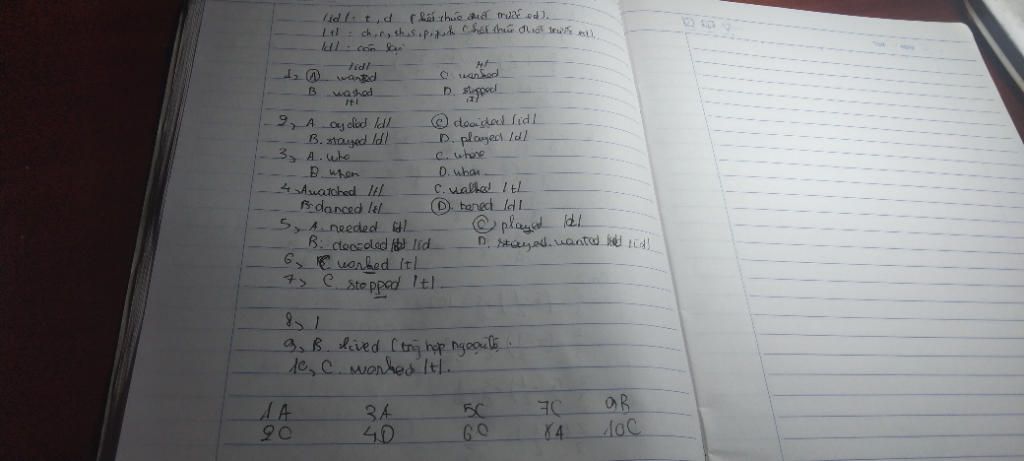 /id/ : t, d (kết thúc đuôi trước ed).
/t/ : ch, x, sh, s, p, k (kết thúc đuôi trước ed)
/d/ : còn lại
/id/ /t/
1, A wanted C. worked
B washed D. stopped
/t/ /t/
2, A. cycled /d/ C decided /id/
B. stayed /d/ D. played /d/
3, A. who C. where
B. when D. what
4, A watched /t/ C. walked /t/
B. danced /t/ D bored /d/
5, A. needed C played /d/
B. decided /id D. wanted /id/
6, C worked /t/
7, C. stopped /t/.
8, 1
9, B. lived (trg hợp ngoại lệ.
10, C. worked /t/.
1A 3A 5C 7C 9B
2C 4D 6C 8A 10C